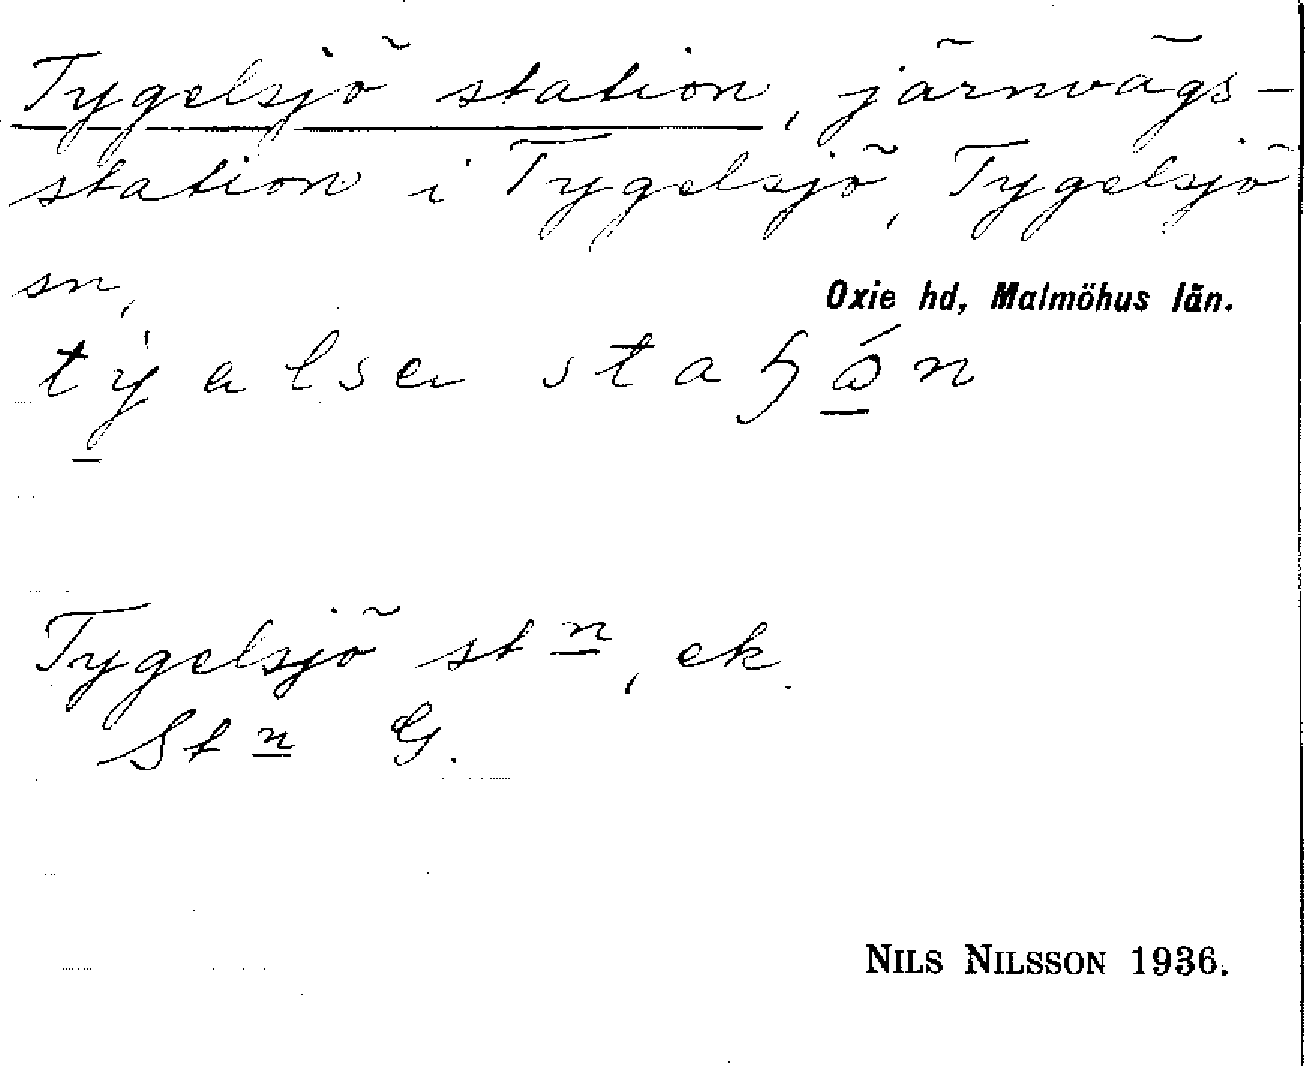 Tygelsjö station, järnvägs-
station i Tygelsjö, Tygelsjö
sn,
Oxie hd, Malmöhus län.
Tygelsjö st<u>n</u>, ek.
St<u>n</u> G.
NILS NILSSON 1936.